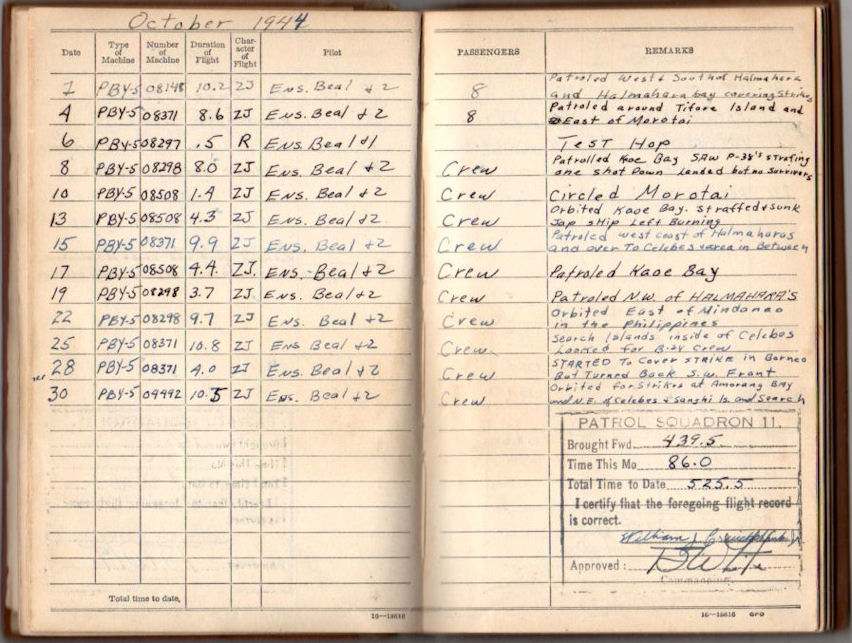 October 1944
Date Type of Machine Number of Machine Duration of Flight Character of Flight Pilot PASSENGERS REMARKS
1 PBY-5 08148 10.2 ZJ Ens. Beal + 2 8 Patroled West & South of Halmahera
and Halmahara bay covering Strikes
4 PBY-5 08371 8.6 ZJ Ens. Beal + 2 8 Patroled around Tifore Island and
East of Morotai
6 PBY-5 08297 .5 R Ens. Beal +1 Test Hop
8 PBY-5 08298 8.0 ZJ Ens. Beal + 2 Crew Patrolled Kaoe Bay SAW P-38's strafing
one shot Down Landed but no Survivors
10 PBY-5 08508 1.4 ZJ Ens. Beal + 2 Crew Circled Morotai
13 PBY-5 08508 4.3 ZJ Ens. Beal + 2 Crew Orbited Kaoe Bay. Straffed & sunk
Jap ship Left Burning
15 PBY-5 08371 9.9 ZJ Ens. Beal + 2 Crew Patroled west coast of Halmaharas
and over To Celebes & area in Between
17 PBY-5 08508 4.4 ZJ. Ens. Beal + 2 Crew Patroled Kaoe Bay
19 PBY-5 08298 3.7 ZJ Ens. Beal + 2 Crew Patroled N.W. of HALMAHARA'S
22 PBY-5 08298 9.7 ZJ Ens. Beal + 2 Crew Orbited East of Mindanao
in the Philippines
25 PBY-5 08371 10.8 ZJ Ens Beal + 2 Crew Search Islands inside of Celebes
Looked for B-24 Crew
28 PBY-5 08371 4.0 ZJ Ens. Beal + 2 Crew STARTED To Cover STRIKE in Borneo
But Turned Back S.W. Front
30 PBY-5 04492 10.5 ZJ Ens. Beal + 2 Crew Orbited for Strikes at Amorang Bay
and N.E. of Celebes & Sanghi Is. and Search
PATROL SQUADRON 11.
Brought Fwd. 439.5
Time This Mo 86.0
Total Time to Date 525.5
I certify that the foregoing flight record
is correct.
William J.
Approved:
Commanding.
Total time to date,
16—18616
16—18616 GPO